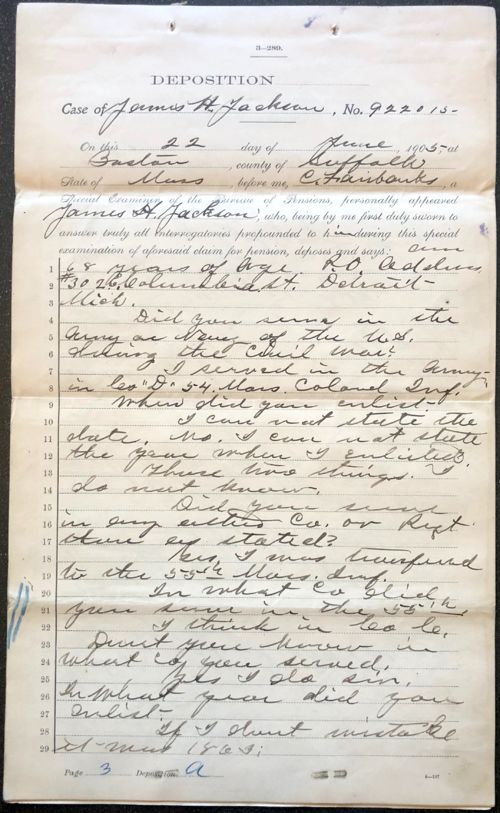 3—289.
DEPOSITION
Case of James H. Jackson, No. 922015-
On this 22 day of June, 1905, at
Boston, county of Suffolk
State of Mass, before me, C. Fairbanks, a
Special Examiner of the Bureau of Pensions, personally appeared
James H. Jackson, who, being by me first duly sworn to
answer truly all interrogatories propounded to him during this special
examination of aforesaid claim for pension, deposes and says: am
1 68 years of age P.O. address
2 #302 Columbia St. Detroit
3 Mich.
4 Did you serve in the
5 Army or Navy of the U.S.
6 during the Civil War?
7 I served in the Army-
8 in Co "D" 54 Mass. Colored Inf.
9 When did you enlist-
10 I can not state the
11 date. No. I can not state
12 the year when I enlisted.
13 Those two things. I
14 do not know.
15 Did you serve
16 in any other Co. or Regt
17 than as stated?
18 Yes, I was transferred
19 to the 55th Mass. Inf.
20 In what Co did
21 you serve in the 55th.
22 I think in Co C.
23 Don't you know in
24 what Co you served.
25 Yes I do sir.
26 In What year did you
27 enlist-
28 If I dont mistake
29 it was 1863;
Page 3 Deposition A
6—197